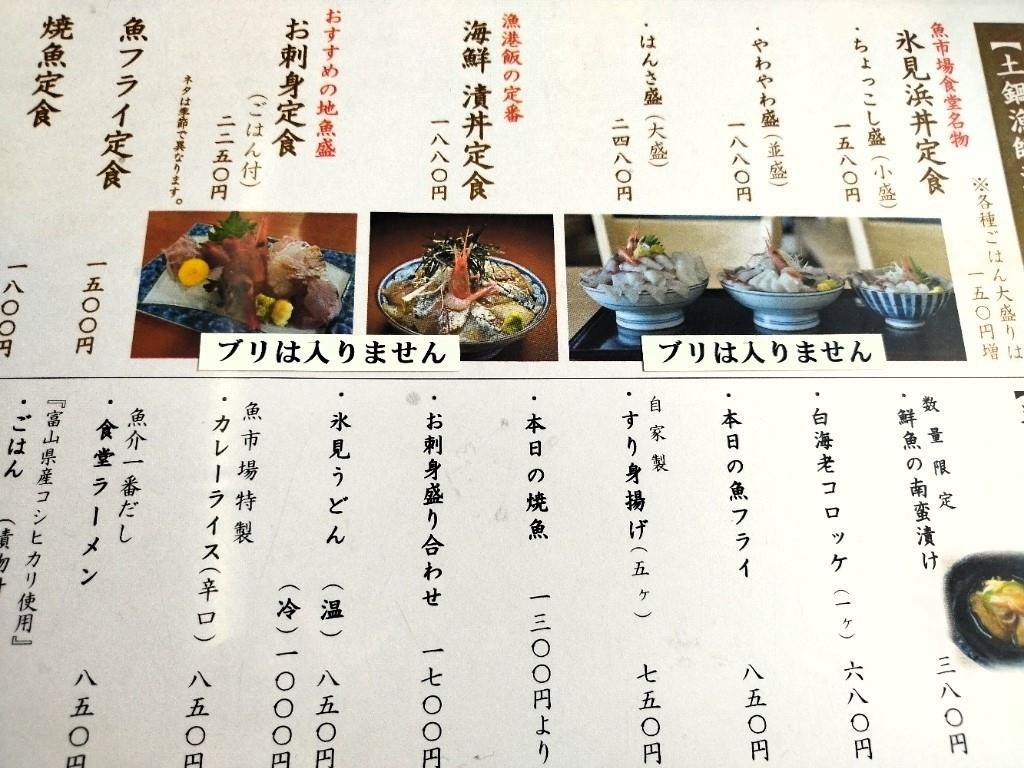 【土鍋漁師
※各種ごはん大盛りは
一五〇円増
魚市場食堂名物
氷見浜丼定食
・ちょっこし盛(小盛)
一五八〇円
・やわやわ盛(並盛)
一八八〇円
・はんさ盛(大盛)
二四八〇円
漁港飯の定番
海鮮漬丼定食
一八八〇円
おすすめの地魚盛
お刺身定食
(ごはん付)
二二五〇円
ネタは季節で異なります。
魚フライ定食
一五〇〇円
焼魚定食
一八〇〇円
ブリは入りません
ブリは入りません
数量限定
・鮮魚の南蛮漬け
三八〇円
・白海老コロッケ(一ヶ) 六八〇円
・本日の魚フライ 八五〇円
自家製
・すり身揚げ(五ヶ) 七五〇円
・本日の焼魚 一三〇〇円より
・お刺身盛り合わせ 一七〇〇円
・氷見うどん (温) 八五〇円
(冷)一〇〇〇円
魚市場特製
・カレーライス(辛口) 八五〇円
魚介一番だし
・食堂ラーメン 八五〇円
『富山県産コシヒカリ使用』
・ごはん (漬物付